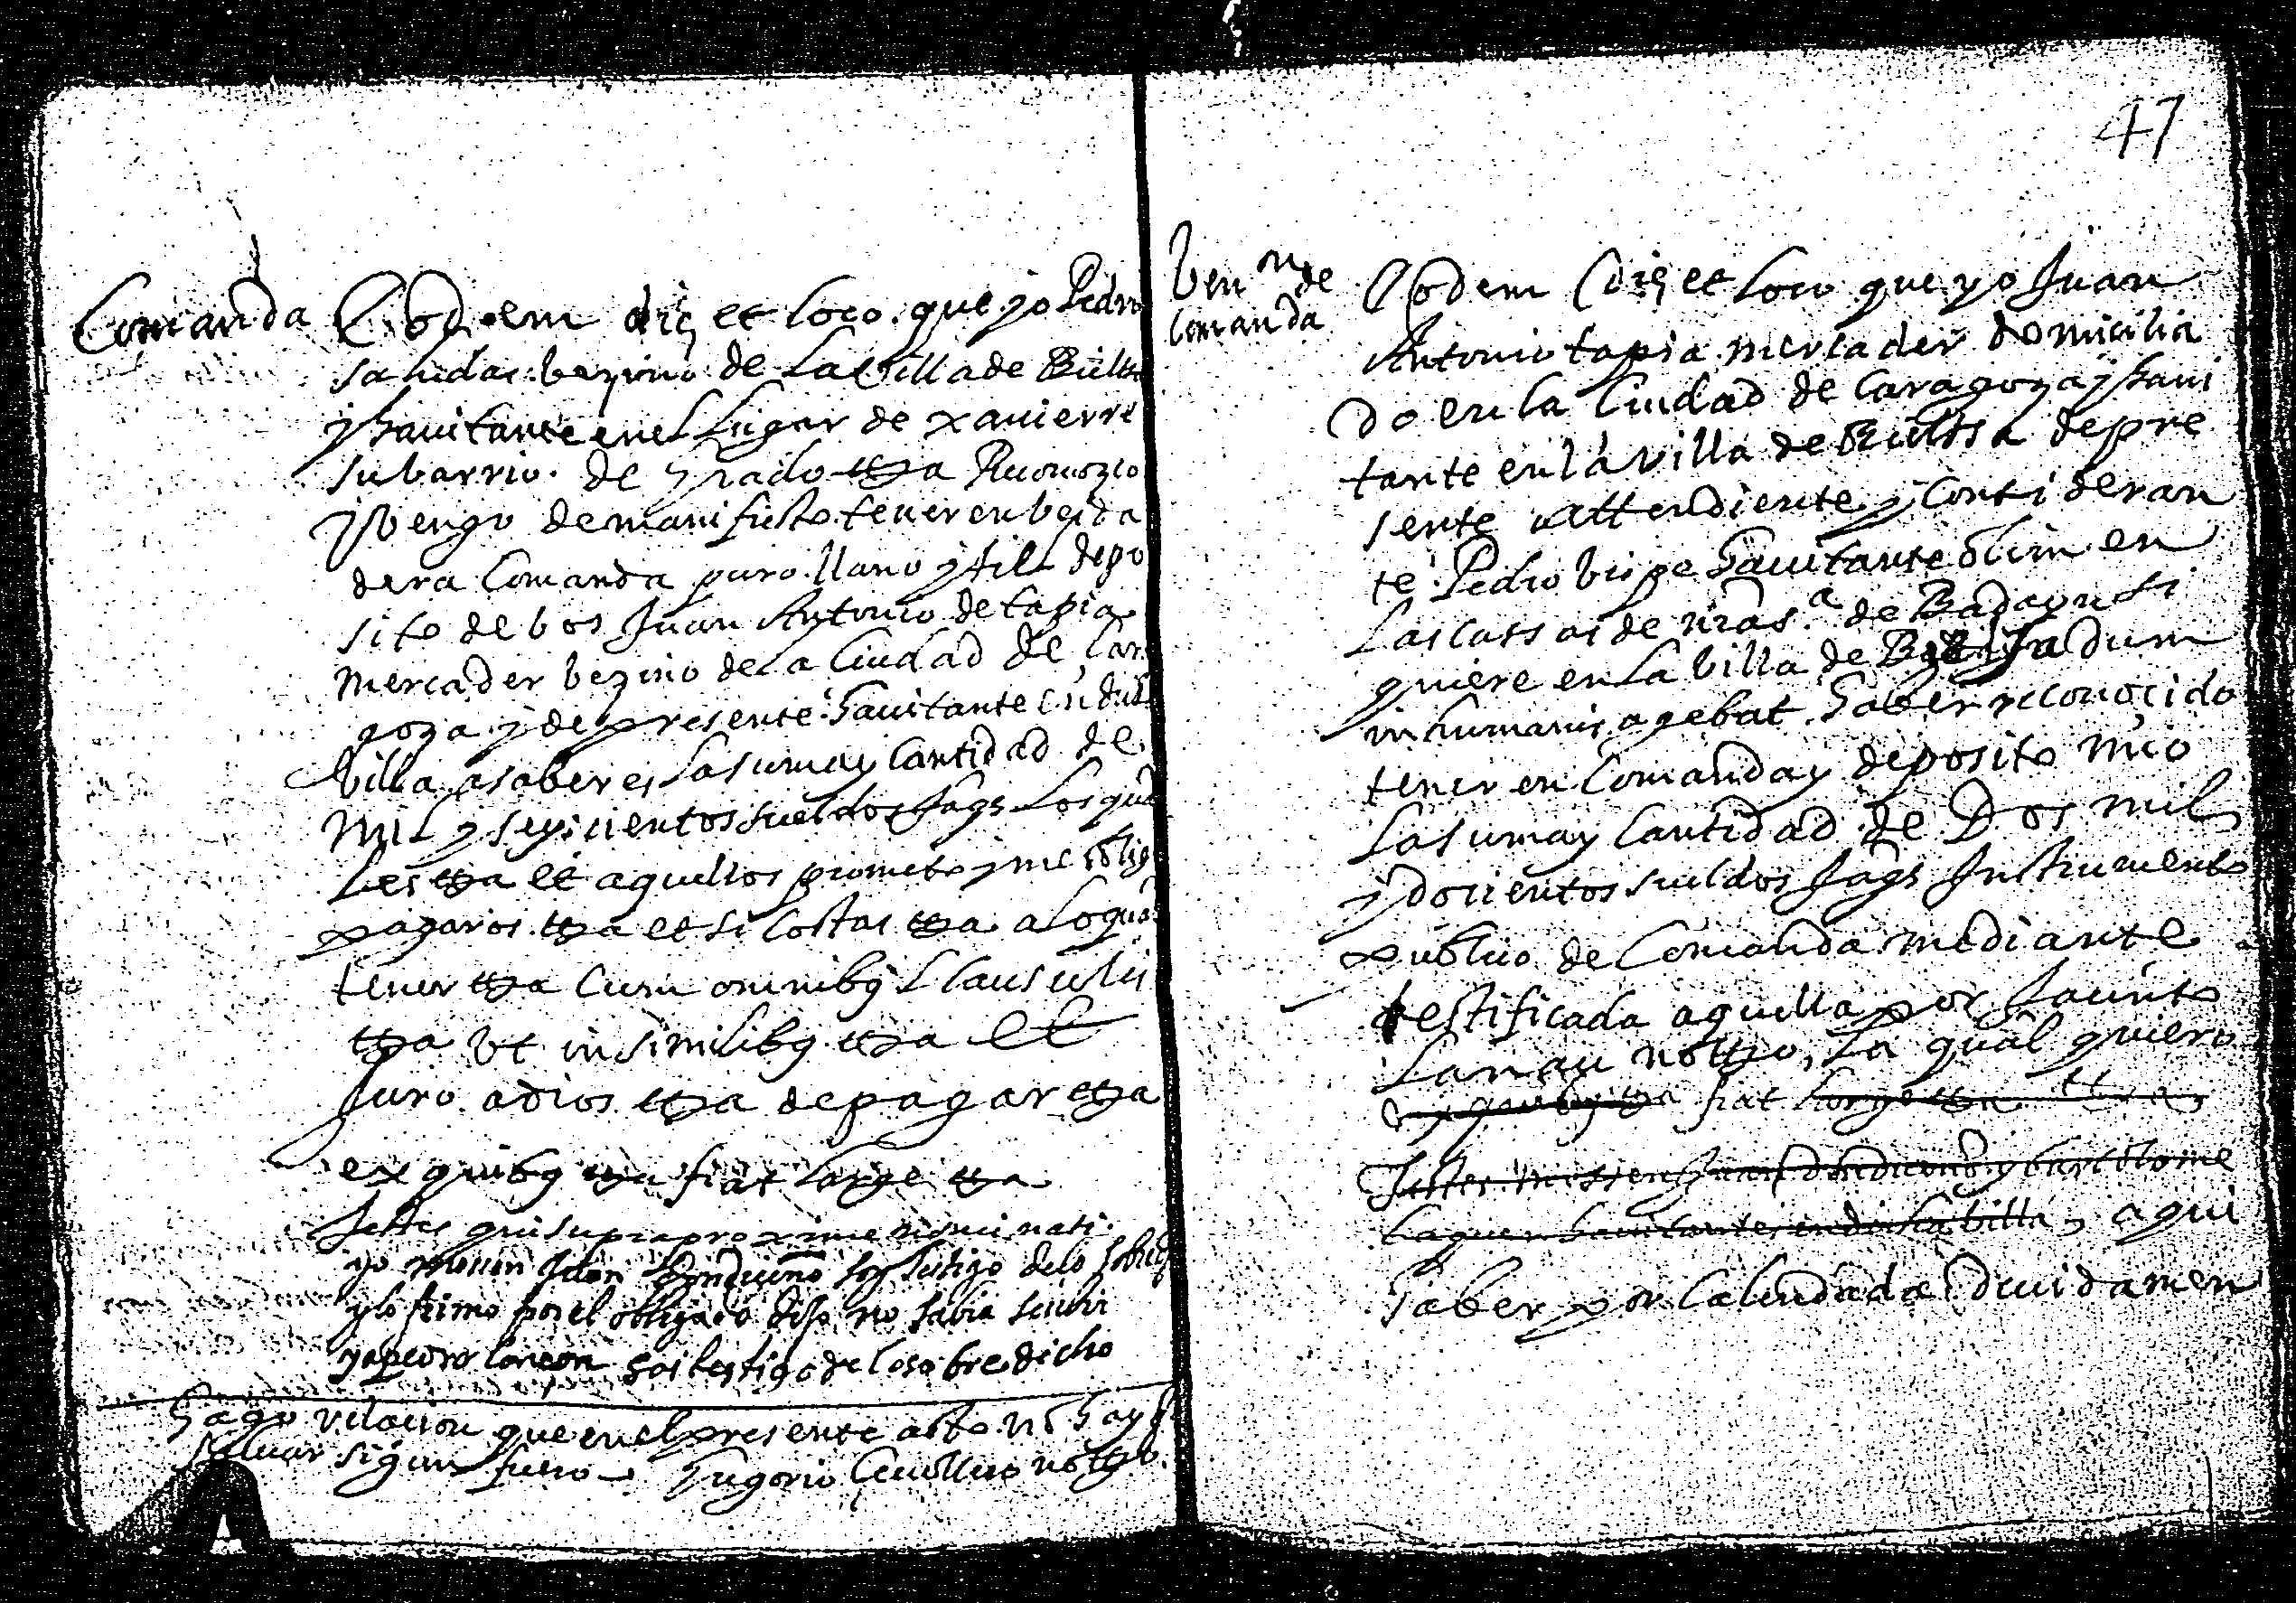 Comanda
Eodem die et loco que yo Pedro
Salinas bezino de la Villa de Biels
y havitante en el Lugar de xavierre
su barrio de grado ttza Reconozco
y bengo de manifiesto tener en berda
dera Comanda puro llano y fiel depo
sito de bos Juan Antonio de tapia
Mercader bezino de la Ciudad de Cara
goza y de presente havitante en dicha
villa asaber es la suma y Cantidad de
Mil y seyscientos sueldos Jaqs los qua
les ttza et aquellos prometo y me oblig
pagaros ttza et si costas ttza a lo qual
tener ttza Cum omnibus Clausulis
ttza Ut in similibus ttza et
Juro a dios ttza de pagar ttza
ex quibus ttza fiat large ttza
Testes qui supra proxime nominati
yo mosen Juan soy testigo de lo sobredi
y lo firmo por el obligado dijo no sabia scribir
yo pedro soi testigo de lo sobre dicho
Hago relacion que en el presente acto no hay q
salvar sigun fuero notto
47
Ven on de
Comanda
Eodem Die et Loco que yo Juan
Antonio tapia mercader domicilia
do en la Ciudad de Caragoza y havi
tante en la villa de Bielsa de pre
sente attendiente y Consideran
te Pedro havitante olim en
Las cassas de nra s.a de Badayn si
quiere en la billa de Bielsa dum
in humanis agebat haber reconocido
tener en Comanda y deposito mio
La suma y Cantidad de Dos mil
y docientos sueldos Jaqs Instrumento
publico de Comanda mediante
testificada aquella por Jacinto
Lanau notto, La qual quiero
ex quibus ttza fiat large ttza
Testes mossen Juan y bartolome
havitantes en dicha billa, aqui
haber por Calendada devidamen